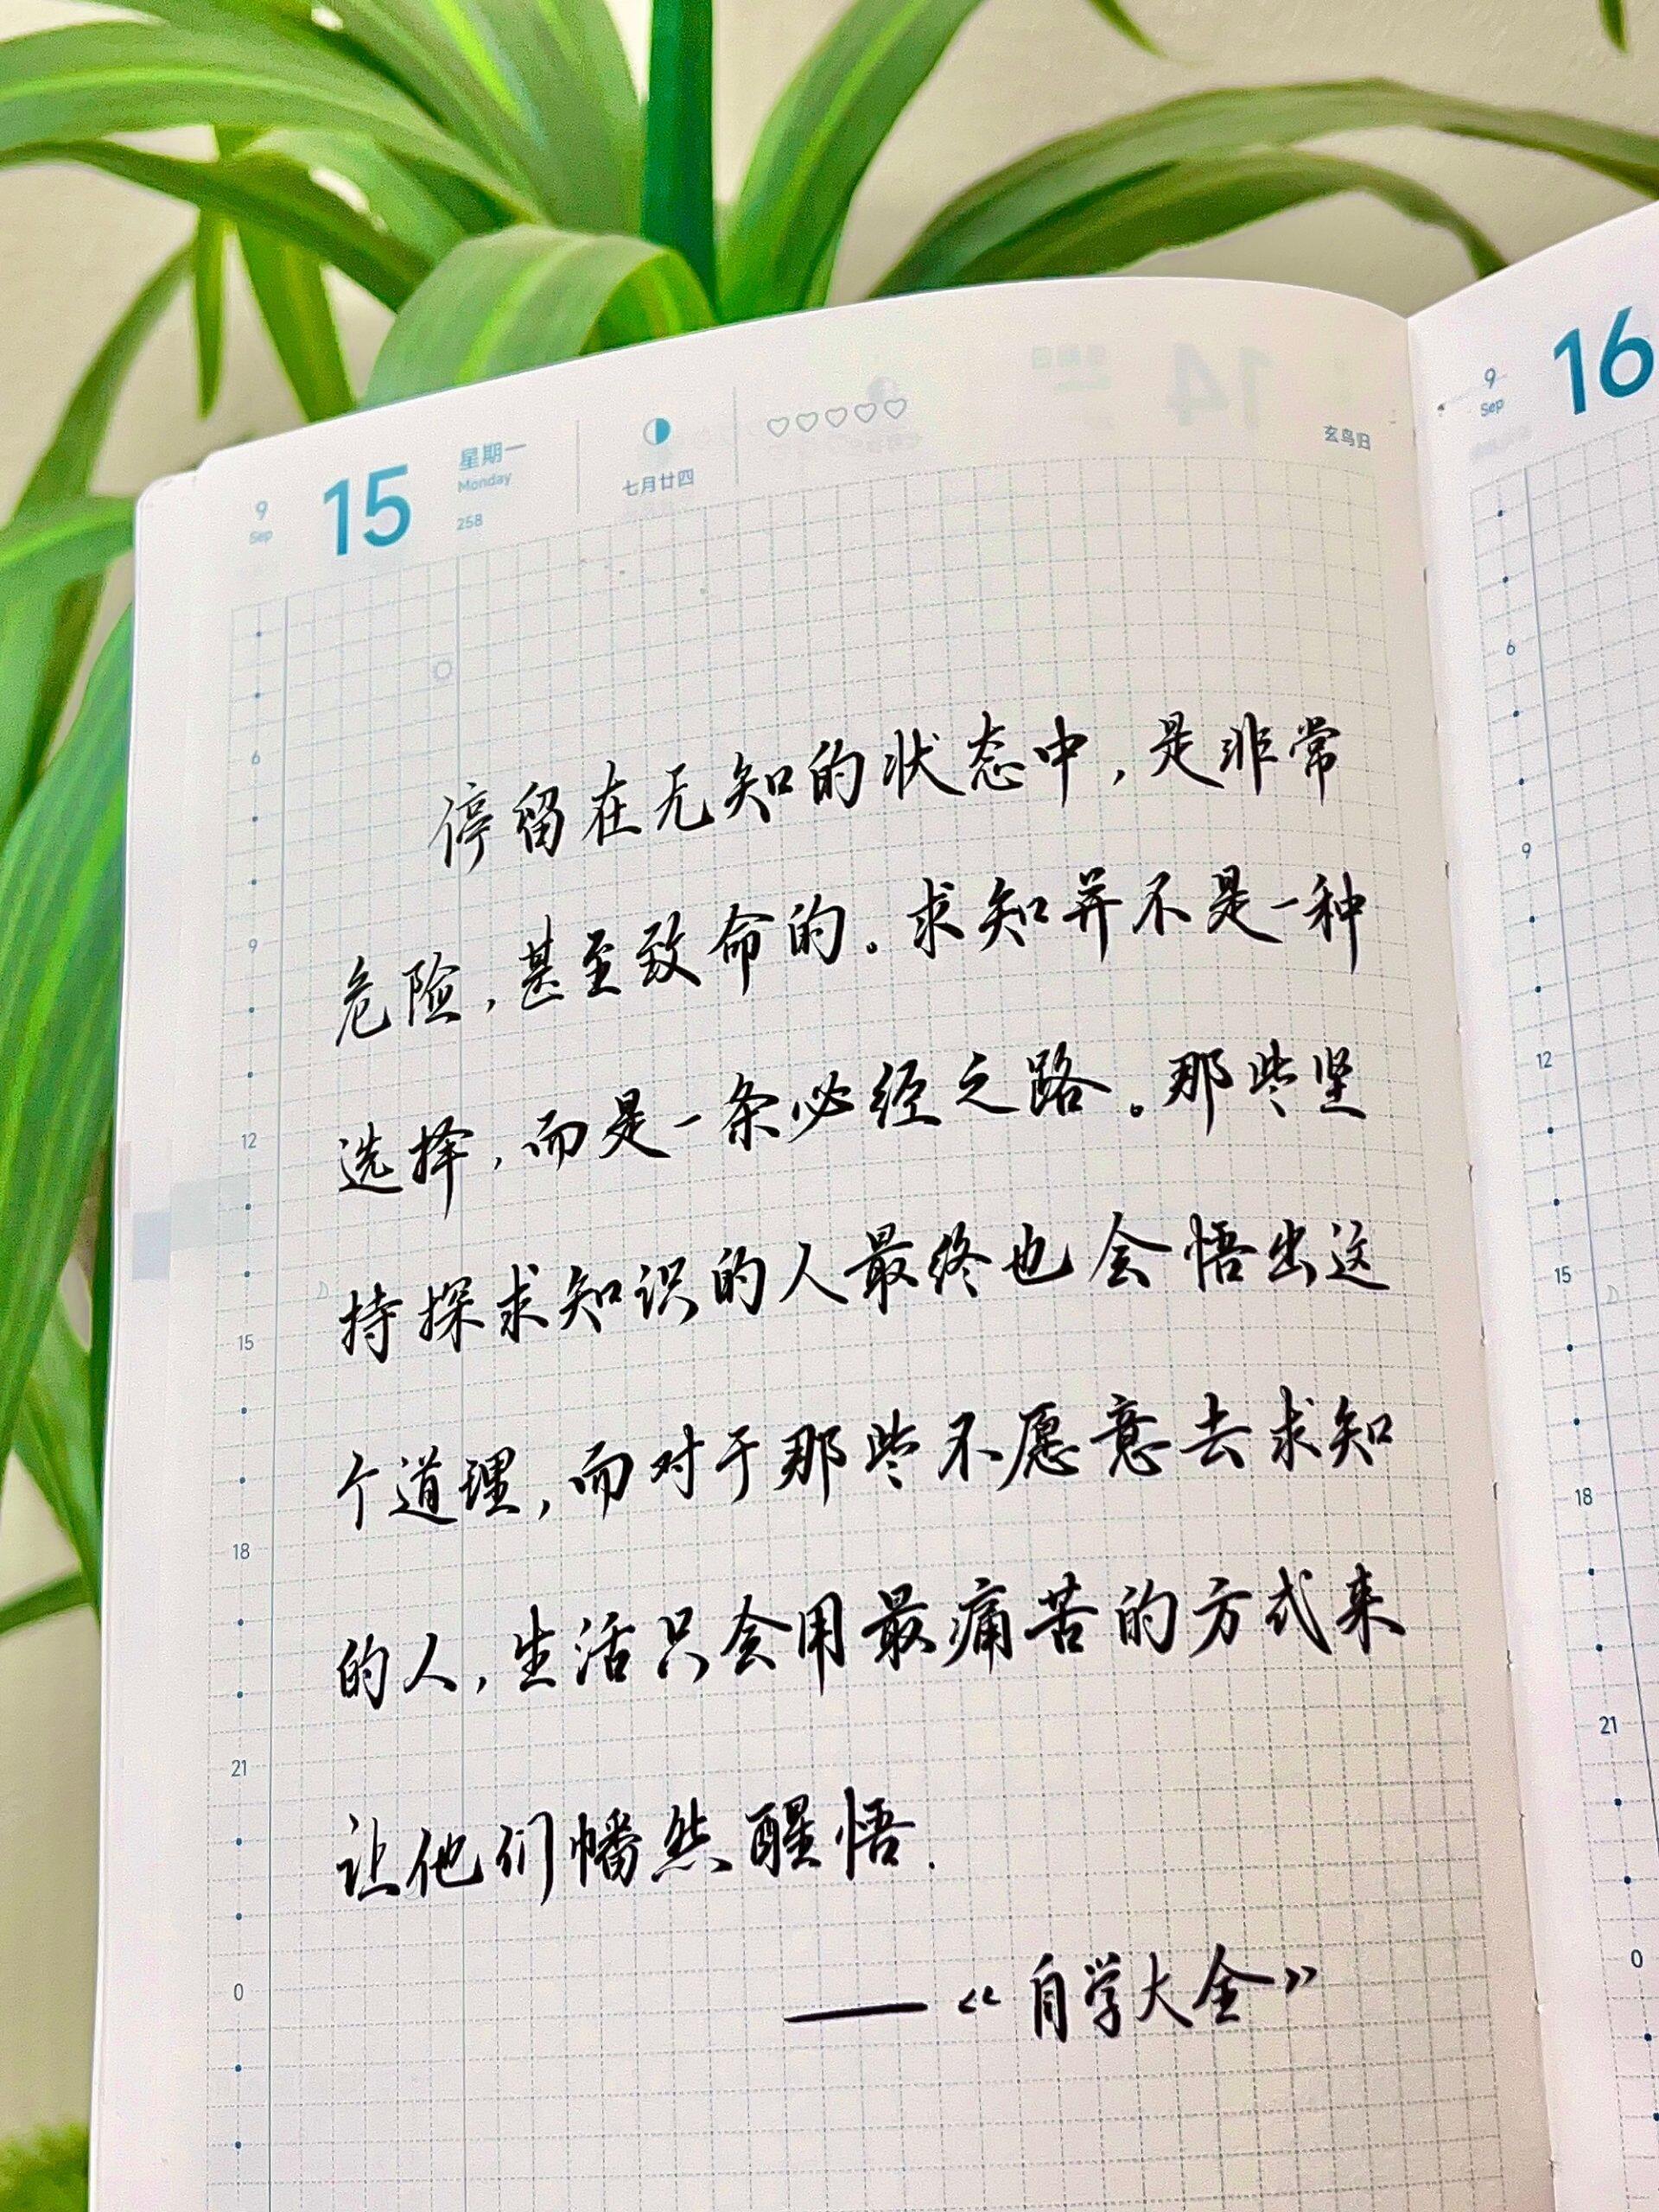 9
Sep
15
星期一
Monday
258
七月廿四
玄鸟归
停留在无知的状态中，是非常
危险，甚至致命的。求知并不是一种
选择，而是一条必经之路。那些坚
持探求知识的人最终也会悟出这
个道理，而对于那些不愿意去求知
的人，生活只会用最痛苦的方式来
让他们幡然醒悟.
——《自学大全》
6
9
12
15
18
21
0
9
Sep
16
6
9
12
15
18
21
0